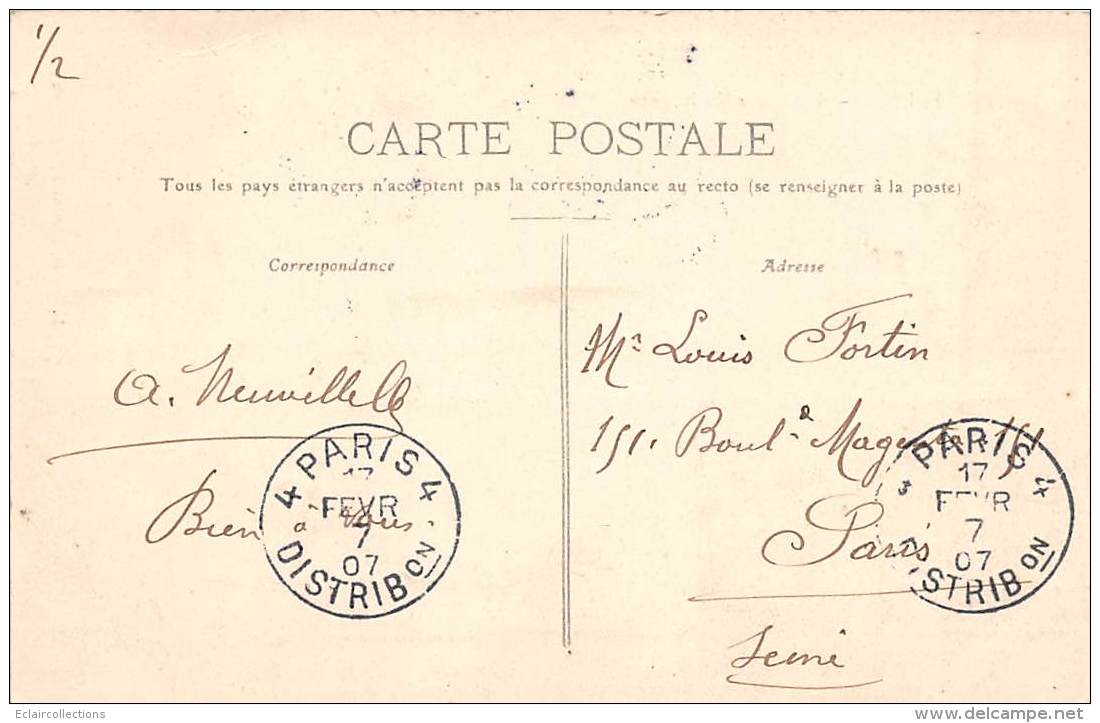 1/2
CARTE POSTALE
Tous les pays étrangers n'acceptent pas la correspondance au recto (se renseigner à la poste)
Correspondance
A. Neuville
Bien à vous.
PARIS
4 4
17
FEVR
7
07
DISTRIBON
Adresse
Mr Louis Fortin
151. Bould Magenta 151
Paris
Seine
PARIS
4
17
FEVR
7
07
DISTRIBON
Eclaircollections
www.delcampe.net